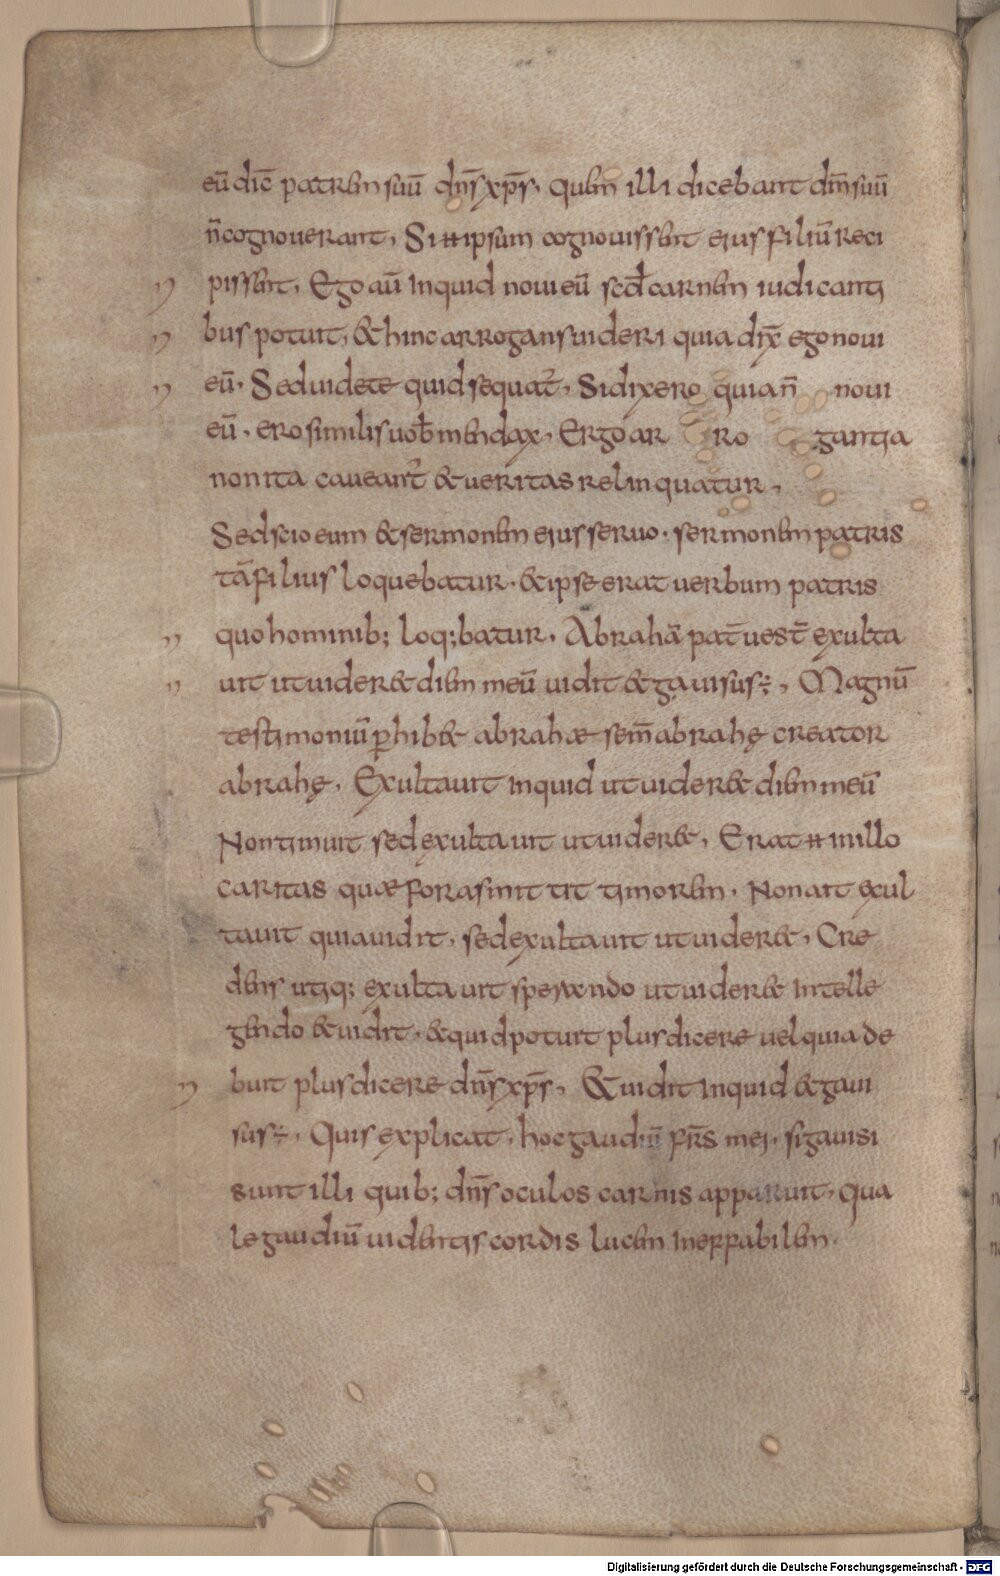 eū dic̄ patrem suū dn̄s xp̄s· quem illi dicebant dm̄ suū
n̄ cognouerant, Si ᚔ ipsum cognouissent eius filiū reci
pissent, Ego aū inquid noui eū sed̄ carnem iudicanti
bus potuit, & hinc arrogans uideri quia dix̄ ego noui
eū· Sed uidete quid sequat̄, Si dixero quia n̄ noui
eū, ero similis uob̄ mendax, Ergo ar ro gantia
non ita caueant̄ & ueritas relinquatur,
Sed scio eum & sermonem eius seruo· sermonem patris
tā filius loquebatur· & ipse erat uerbum patris
quo hominib; loq;batur, Abrahā pat̄ uest̄ exulta
uit ut uider& diem meū uidit & gauisus÷, Magnū
testimoniū p̱hib& abrahæ sem̄ abrahę creator
abrahę, Exultauit inquid ut uider& diem meū
Non timuit sed exultauit ut uider&, Erat ᚔ in illo
caritas quæ foras mittit timorem, Non ait exul
tauit quia uidit, sed exultauit ut uider&, Cre
dens utiq; exultauit sperando ut uider& intelle
gendo & uidit, & quid potuit plus dicere uel quia de
buit plus dicere dn̄s xp̄s, & uidit inquid & gaui
sus÷, Quis explicat, hoc gaudiū fr̄s mei, si gauisi
sunt illi quib; dn̄s oculos carnis apparuit, qua
le gaudiū uidentis cordis lucem ineffabilem·
Digitalisierung gefördert durch die Deutsche Forschungsgemeinschaft - DFG